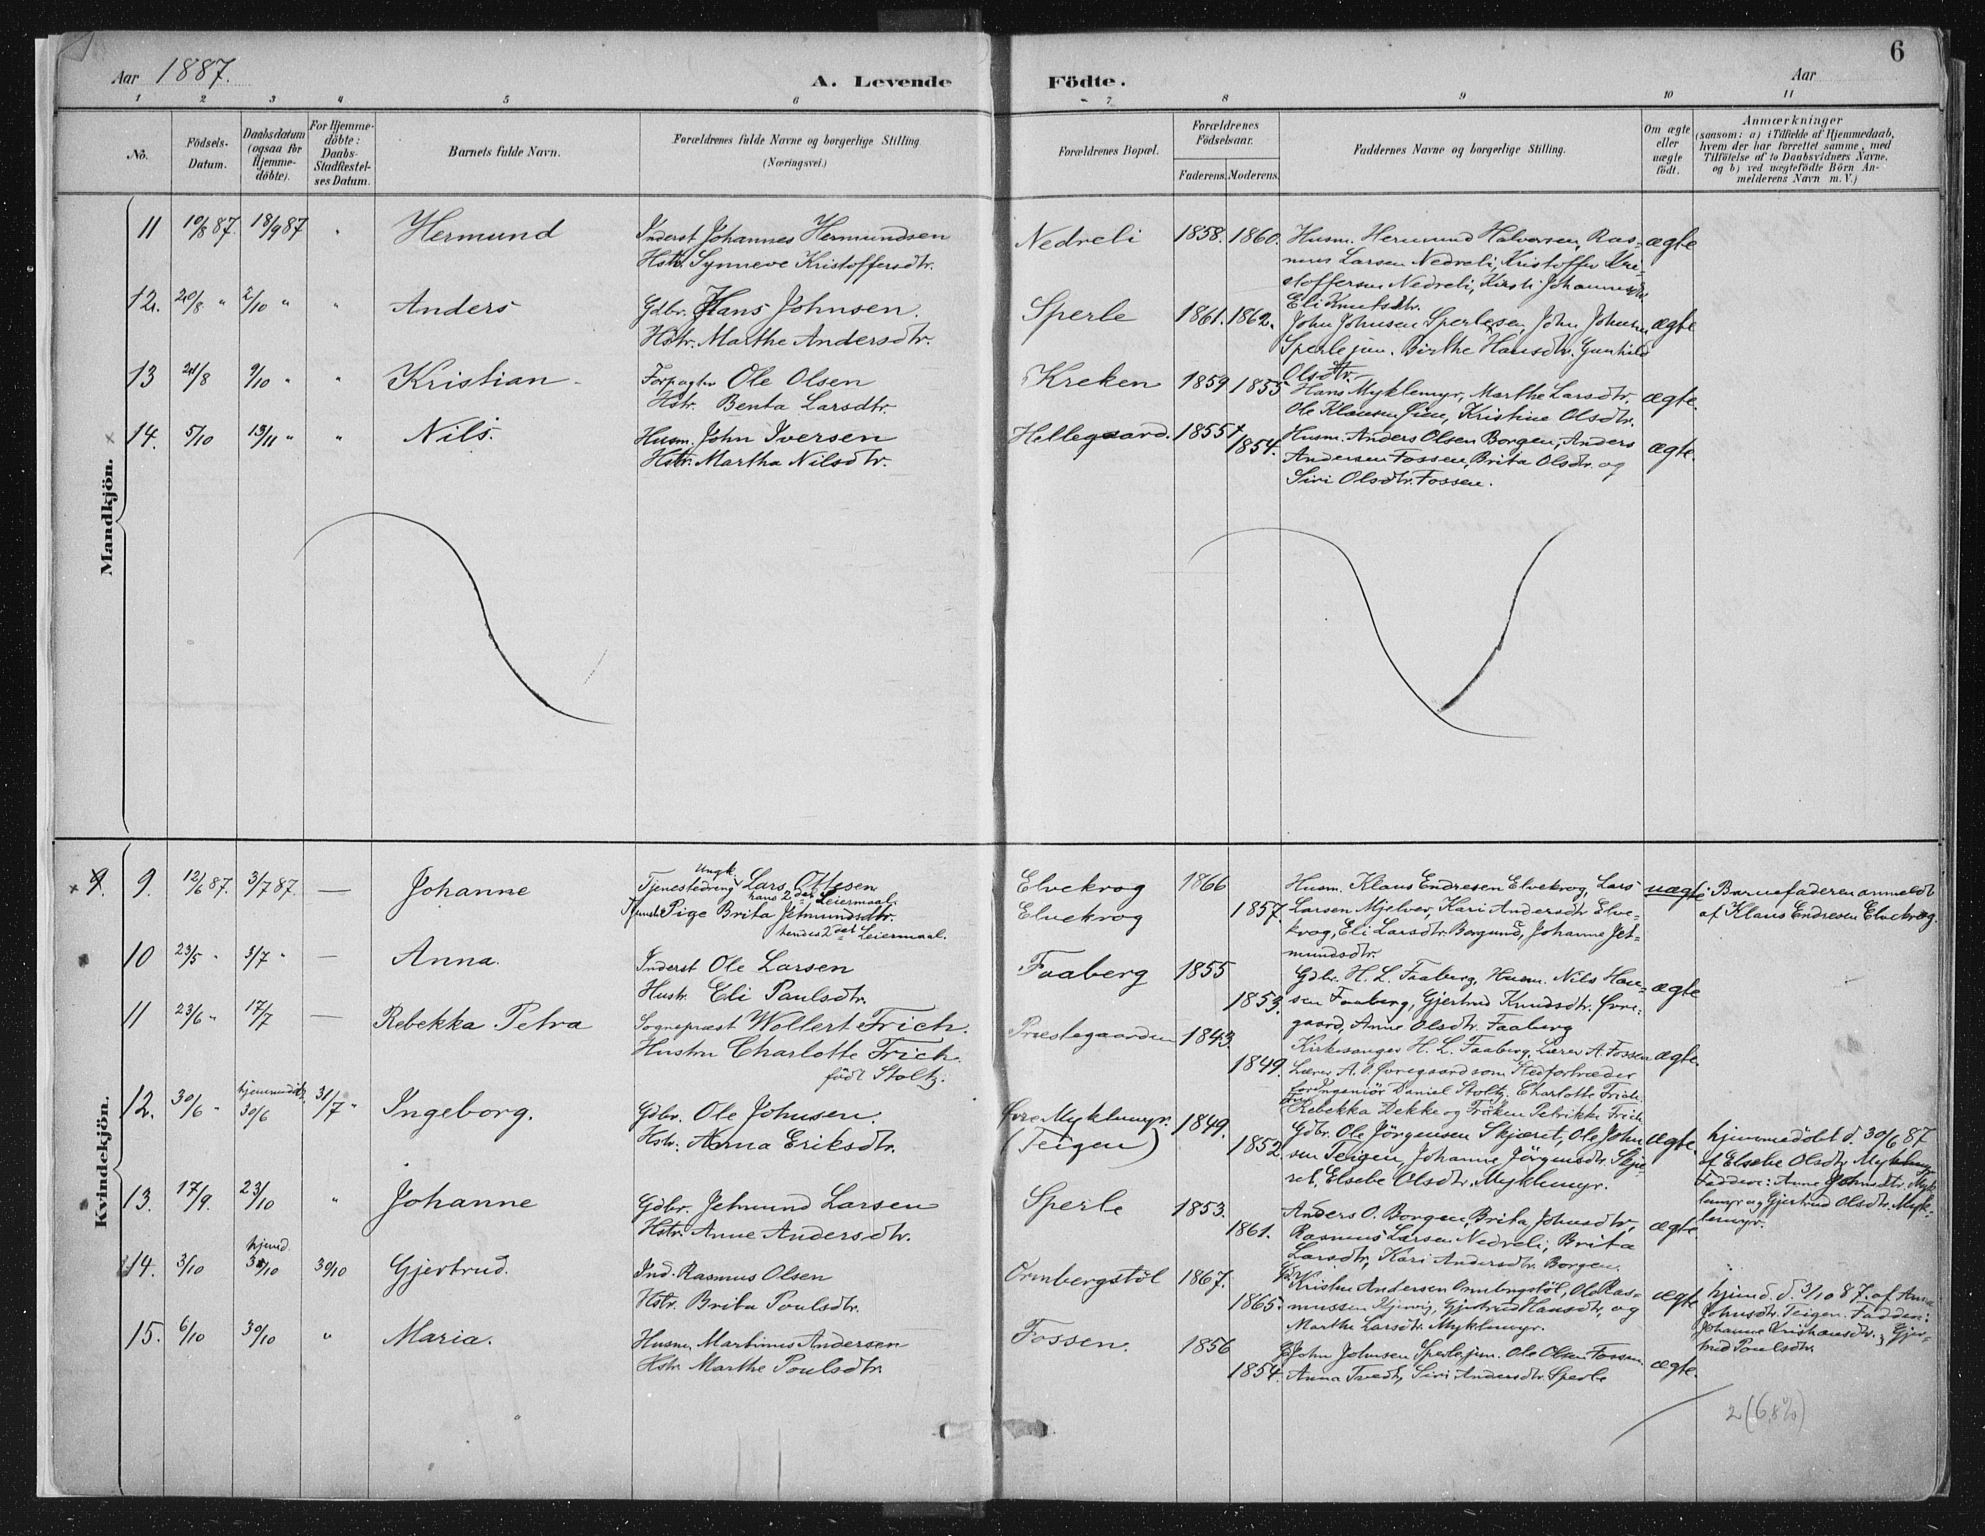 6
Aar 1887. A. Levende Födte. Aar
1 2 3 4 5 6 7 8 9 10 11
No. Födsels-Datum. Daabsdatum (ogsaa for Hjemme-döbte). For Hjemme-döbte: Daabs-Stadfestel-ses Datum. Barnets fulde Navn. Forældrenes fulde Navne og borgerlige Stilling. (Næringsvei.) Forældrenes Bopæl. Forældrenes Födselsaar. Faderens. Moderens. Faddernes Navne og borgerlige Stilling. Om ægte eller uægte födt. Anmærkninger (saasom: a) i Tilfælde af Hjemmedaab, hvem der har forrettet samme, med Tilföielse af to Daabsvidners Navne, og b) ved uægtefödte Börn An-melderens Navn m. V.)
Mandkjön.
11 10/8 87. 18/9 87 " Hermund Inderst Johannes Hermundsen Nedreli 1858. 1860. Husm. Hermund Halvorsen, Ras- ægte
Hstr. Synneve Kristoffersdtr. mus Larsen Nedreli, Kristoffer Kri-
stoffersen Nedreli, Kirsti Johannesdtr
Eli Knutsdtr.
12. 20/8 " 2/10 " " Anders Gdbr. Hans Johnsen. Sperle 1861. 1862. John Johnsen Sperle sen, John Johnsen ægte
Hstr. Marthe Andersdtr. Sperle jun. Birthe Hansdtr. Gunhild
Olsdtr.
13 21/8 9/10 " " Kristian Forpagter Ole Olsen Kreken 1859 1855 Hans Myklemyr, Marthe Larsdtr. ægte.
Hstr. Benta Larsdtr. Ole Klausen, Kristine Olsdtr.
14. 5/10 13/11 " " Nils. Husm. John Iversen Hellegaard. 1855 1854. Husm. Anders Olsen Borgen, Anders ægte.
Hstr. Martha Nilsdtr. Andersen Fossen, Brita Olsdtr. og
Siri Olsdtr. Fossen.
Kvindekjön.
9. 9. 12/6 87. 3/7 87 — Johanne Tjenestedreng Ungk. Lars Ottesen Elvekrog 1866 Husm. Klaus Endresen Elvekrog, Lars uægte Barnefaderen anmeldt
hans 2det Leiermaal.
Pige Brita Jetmundsdtr. Elvekrog 1857. Larsen Mjelver, Kari Andersdtr. Elve- af Klaus Endresen Elvekrog.
hendes 2det Leiermaal. krog, Eli Larsdtr. Borgund, Johanne Jet-
mundsdtr.
10 23/5 " 3/7 " — Anna. Inderst Ole Larsen Faaberg 1855 Gdbr. H. L. Faaberg, Husm. Nils Han- ægte
Hustr. Eli Paulsdtr. 1853. sen Faaberg, Gjertrud Knudsdtr. Øvre-
gaard, Anne Olsdtr. Faaberg
11 23/6 " 17/7 — Rebekka Petra Sognepræst Wollert Frich. Præstegaarden 1843. Kirkesanger H. L. Faaberg, Lærer A. Fossen ægte.
Hustru Charlotte Frich. 1849. Lærer A. O. Øvregaard som Stedfortræder
födt Stoltz. for Ingeniör Daniel Stoltz, Charlotte Frich.
Fru Rebekka Dekke og Fröken Petrikke Frich.
12. 30/6 " hjemmedöbt 30/6 31/7 " Ingeborg. Gdbr. Ole Johnsen. Øvre Myklemyr. 1849. Gdbr. Ole Jörgensen Skjæret, Ole John- ægte. hjemmedöbt d. 30/6 87
Hstr. Anna Eriksdtr. (Teigen) 1852 sen Teigen, Johanne Jörgensdtr. Skjæ- af Elsebe Olsdtr. Myklemyr
ret, Elsebe Olsdtr. Myklemyr. Faddere: Anne Johnsdtr. Myk-
lemyr og Gjertrud Olsdtr. Myk-
lemyr.
13. 17/9. 23/10 " Johanne Gdbr. Jetmund Larsen Sperle 1853. Anders O. Borgen, Brita Johnsdtr, ægte.
Hstr. Anne Andersdtr. 1861. Rasmus Larsen Nedreli, Brita
Larsdtr, Kari Andersdtr. Borgen.
14. 3/10 hjemd. 3/10 30/10 Gjertrud. Ind. Rasmus Olsen Ormbergstöl 1867. Kristen Andersen Ormbergstöl, Ole Ras- ægte hjemd. d. 3/10 87. af Anna
Hstr. Brita Poulsdtr. 1865. mussen, Gjertrud Hansdtr, og Johnsdtr. Teigen. Faddere:
Marthe Larsdtr. Myklemyr. Johanne Kristiansdtr., Gjer-
trud Poulsdtr.
15. 6/10 30/10 " Maria. Husm. Martinus Andersen Fossen. 1856 John Johnsen Sperle jun. Ole Olsen Fossen ægte.
Hstr. Marthe Poulsdtr. 1854. Anna Tvedt, Siri Andersdtr. Sperle
2 (6,8%)